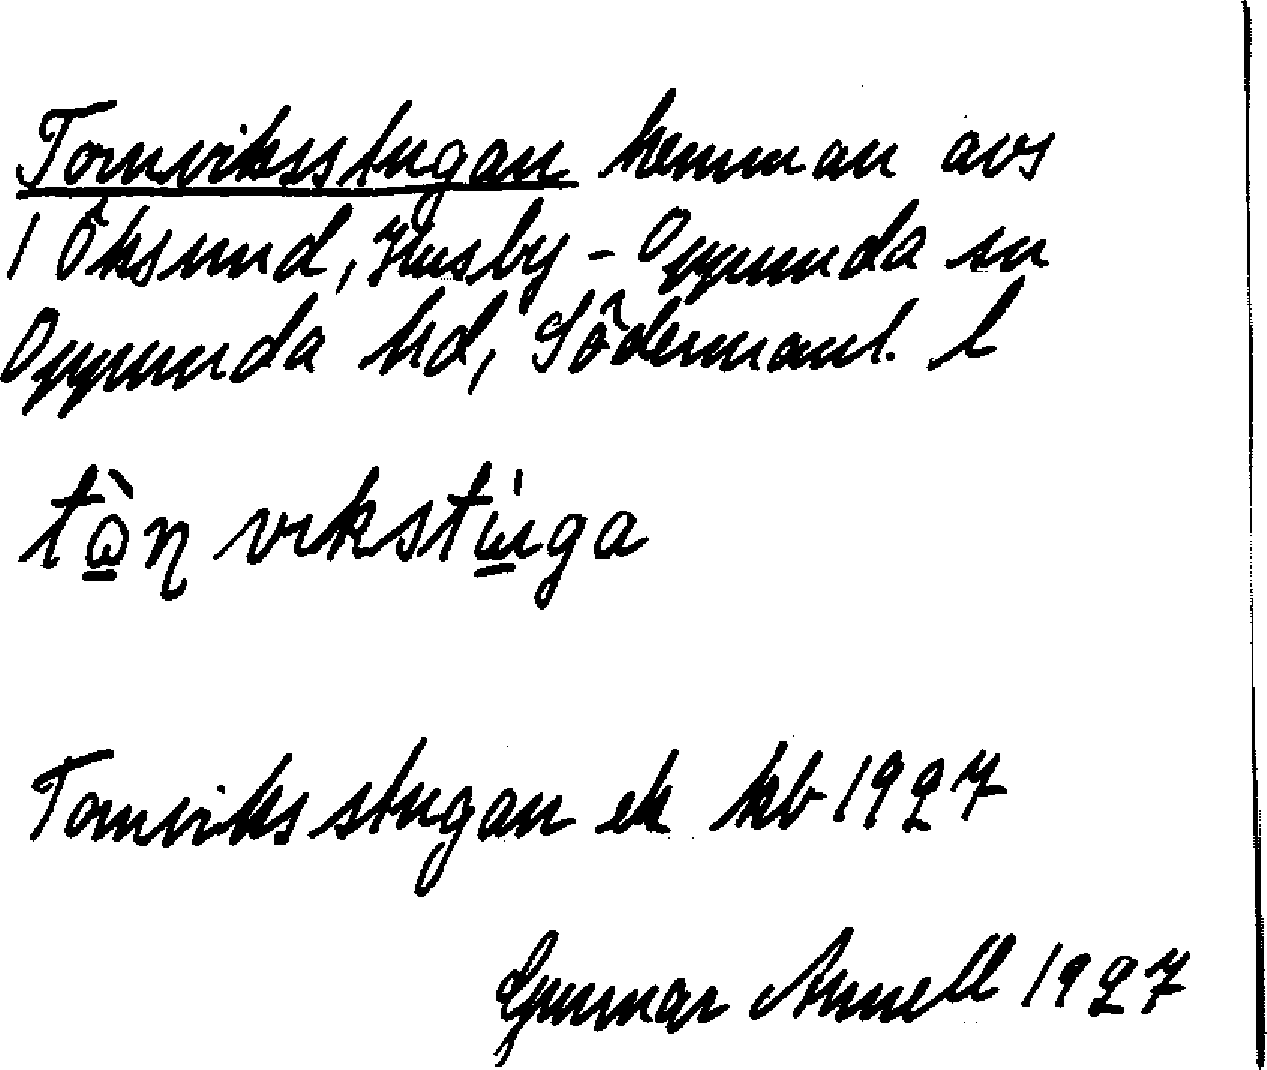 Tornviksstugan hemman avs
1 Öksund, Husby-Oppunda sn
Oppunda hd, Södermanl. l
tὼ̲ɳ vɩkstώ̲ga
Tornviksstugan ek kb 1927
Gunnar Annell 1927